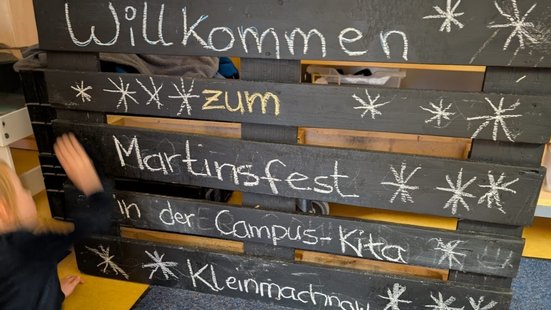 Willkommen
zum
Martinsfest
in der Campus-Kita
Kleinmachnow